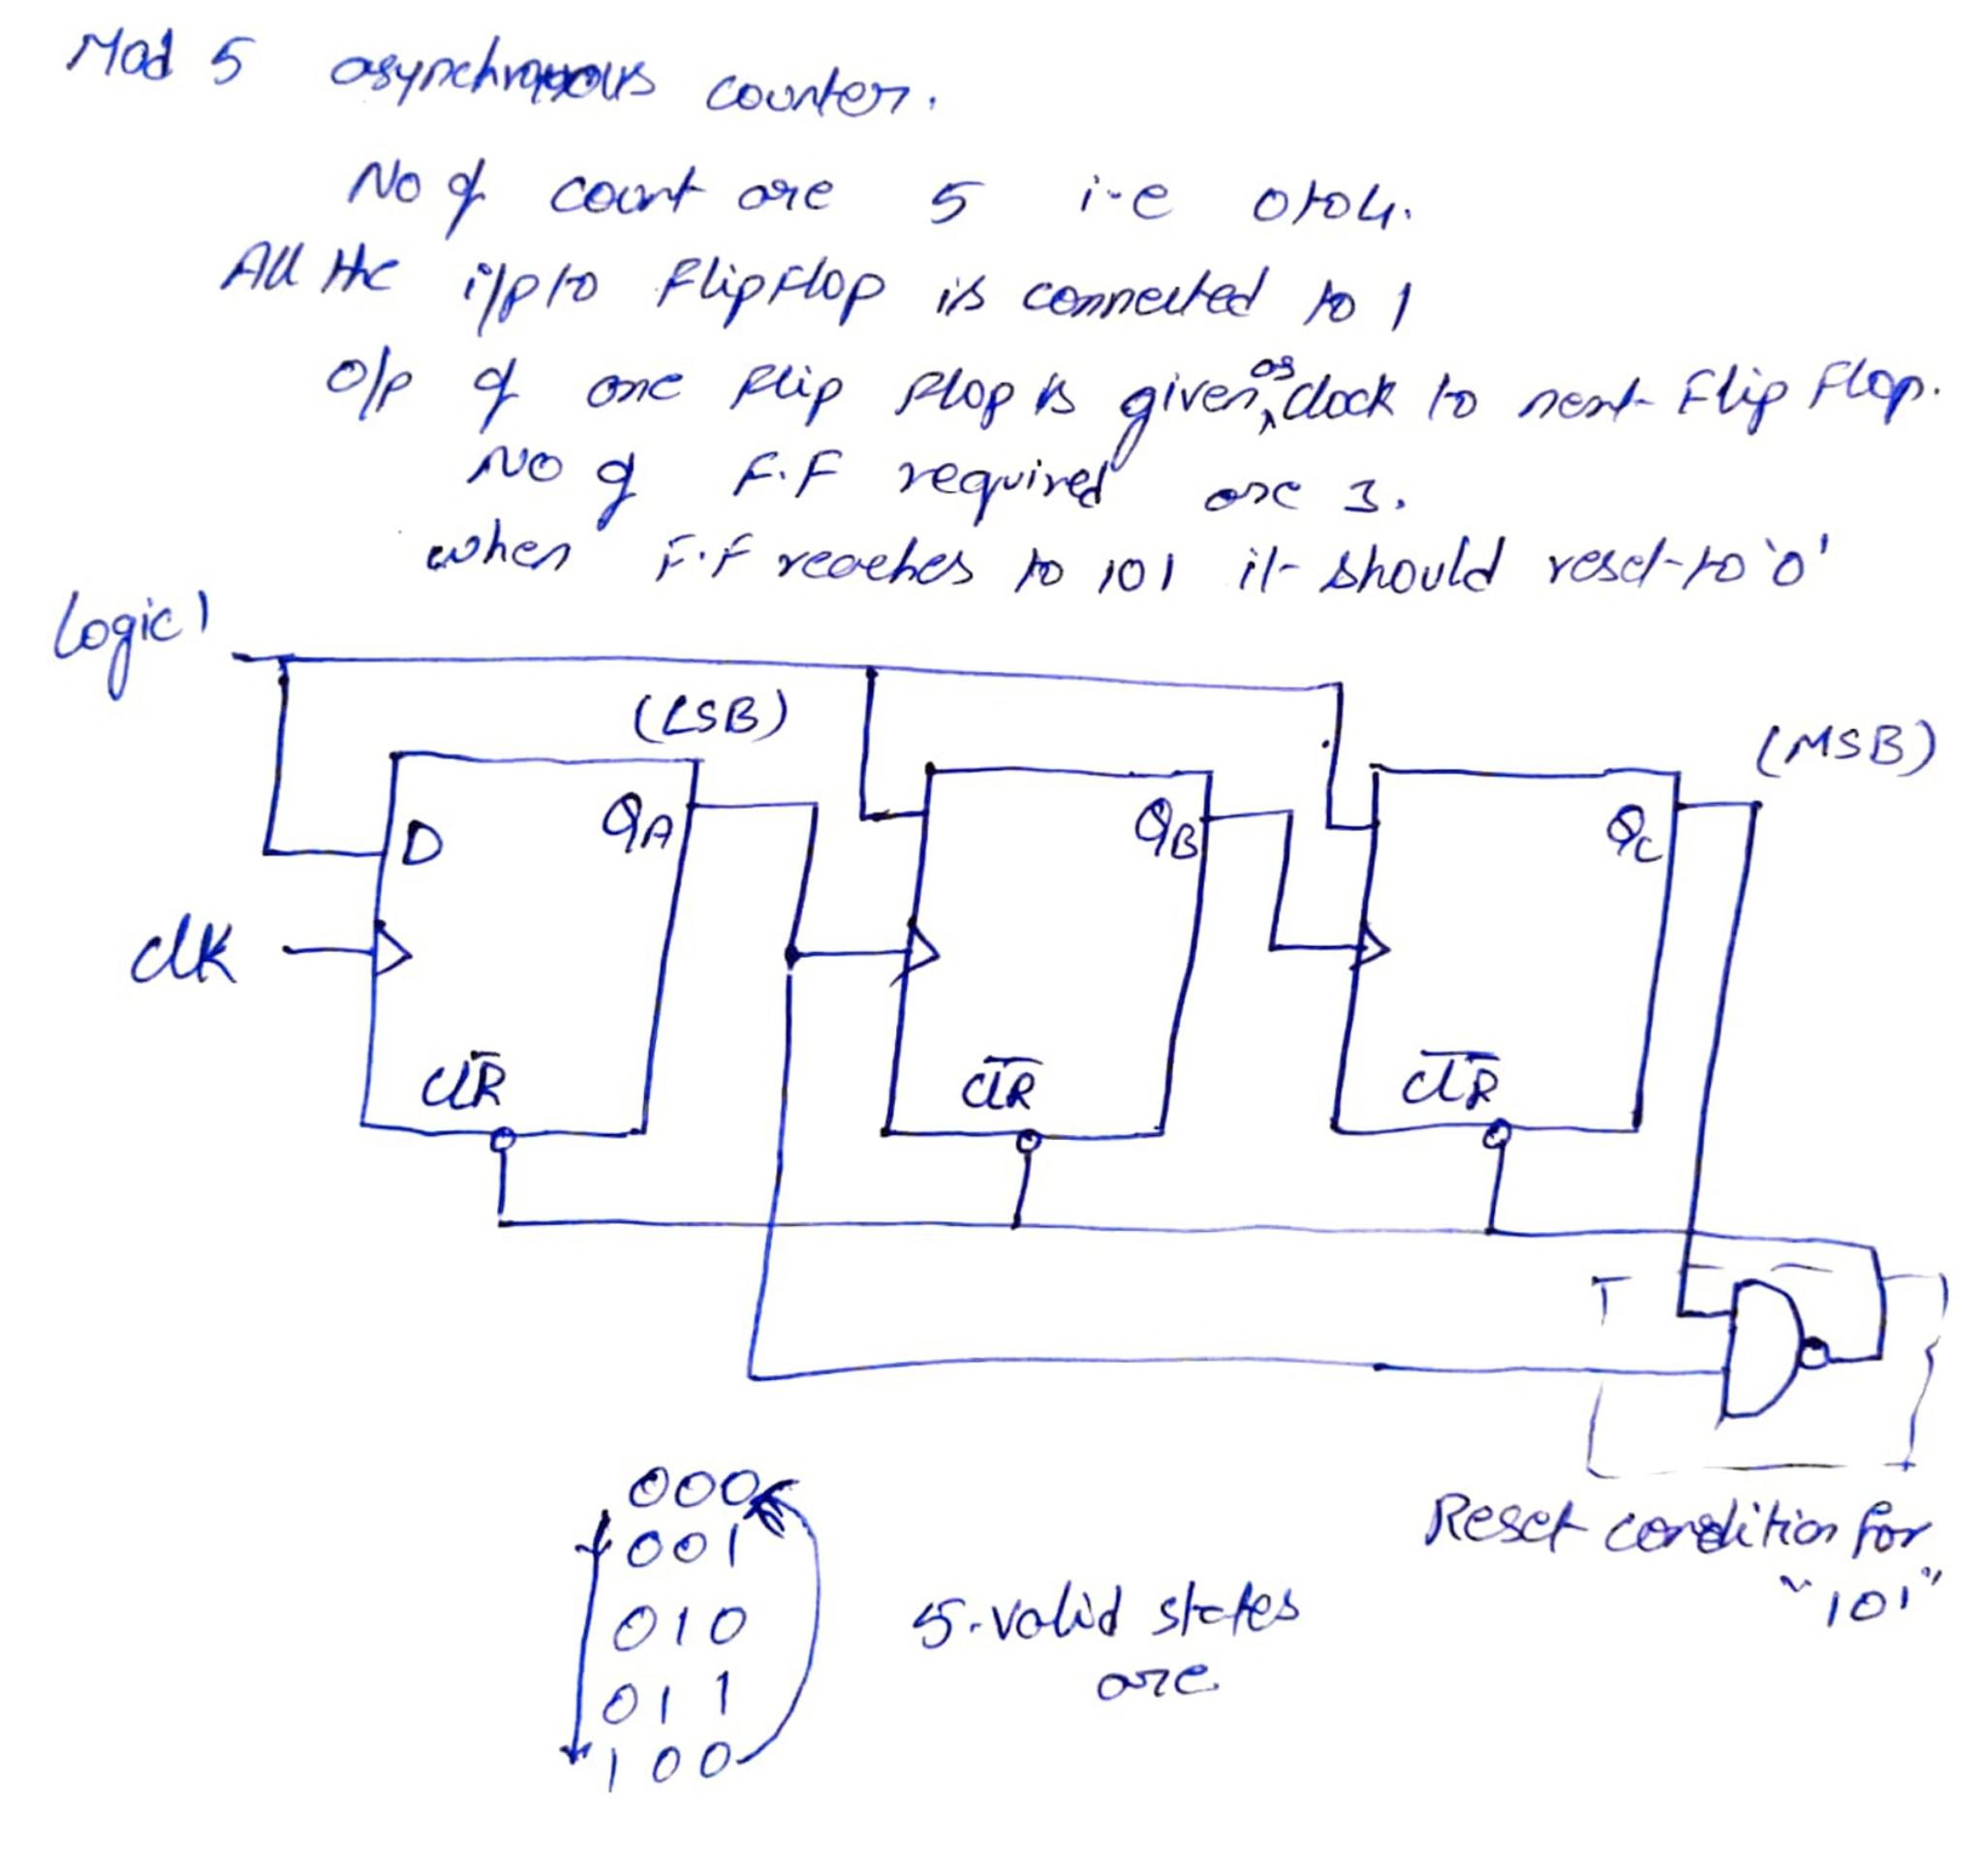 Mod 5 asynchronous counter.
No of count are 5 i-e 0 to 4.
All the i/p to FlipFlop is connected to 1
O/p of one Flip Flop is given as clock to next Flip Flop.
No of F.F required are 3.
when F.F reaches to 101 it should reset to '0'
Logic 1
(LSB)
(MSB)
D QA QB QC
clk
CLR CLR CLR
000
001
010
011
100
5-valid states
are
Reset condition for
"101"